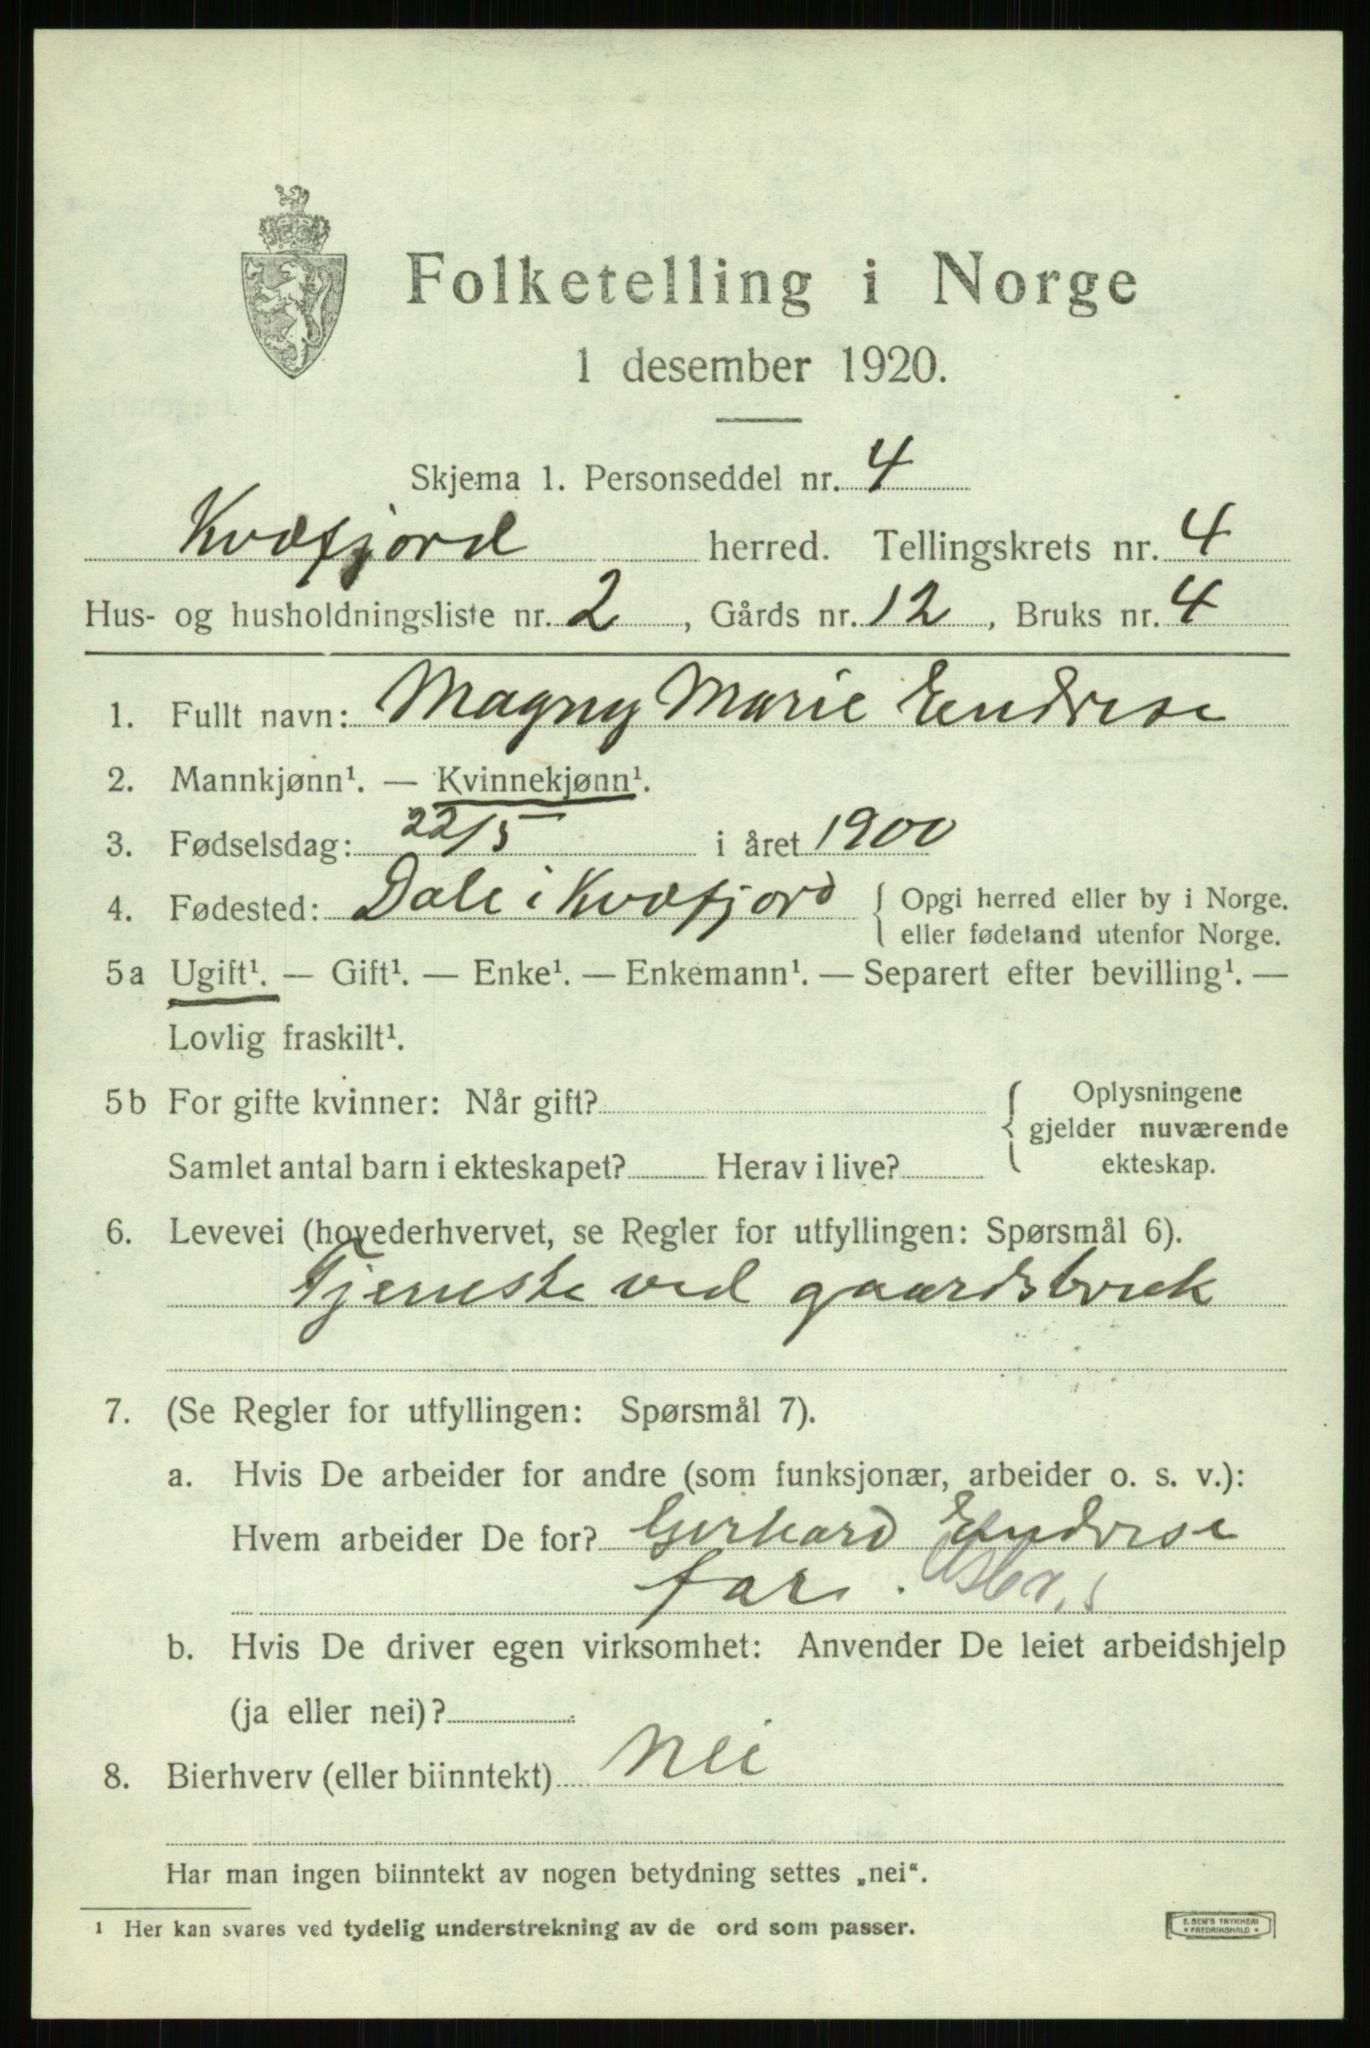 Folketelling i Norge
1 desember 1920.
Skjema 1. Personseddel nr. 4
Kvæfjord herred. Tellingskrets nr. 4
Hus- og husholdningsliste nr. 2, Gårds nr. 12, Bruks nr. 4
1. Fullt navn: Magny Marie Endrese
2. Mannkjønn¹. — Kvinnekjønn¹.
3. Fødselsdag: 22/5 i året 1900
4. Fødested: Dale i Kvæfjord { Opgi herred eller by i Norge.
eller fødeland utenfor Norge.
5a Ugift¹. — Gift¹. — Enke¹. — Enkemann¹. — Separert efter bevilling¹. —
Lovlig fraskilt¹.
5b For gifte kvinner: Når gift? { Oplysningene
gjelder nuværende
Samlet antal barn i ekteskapet? Herav i live? ekteskap.
6. Levevei (hovederhvervet, se Regler for utfyllingen: Spørsmål 6).
Tjeneste ved gaardsbruk
7. (Se Regler for utfyllingen: Spørsmål 7).
a. Hvis De arbeider for andre (som funksjonær, arbeider o. s. v.):
Hvem arbeider De for? Gerhard Endrese
far.
b. Hvis De driver egen virksomhet: Anvender De leiet arbeidshjelp
(ja eller nei)?
8. Bierhverv (eller biinntekt) Nei
Har man ingen biinntekt av nogen betydning settes „nei“.
¹ Her kan svares ved tydelig understrekning av de ord som passer.
E. SEM'S TRYKKERI
FREDRIKSHALD